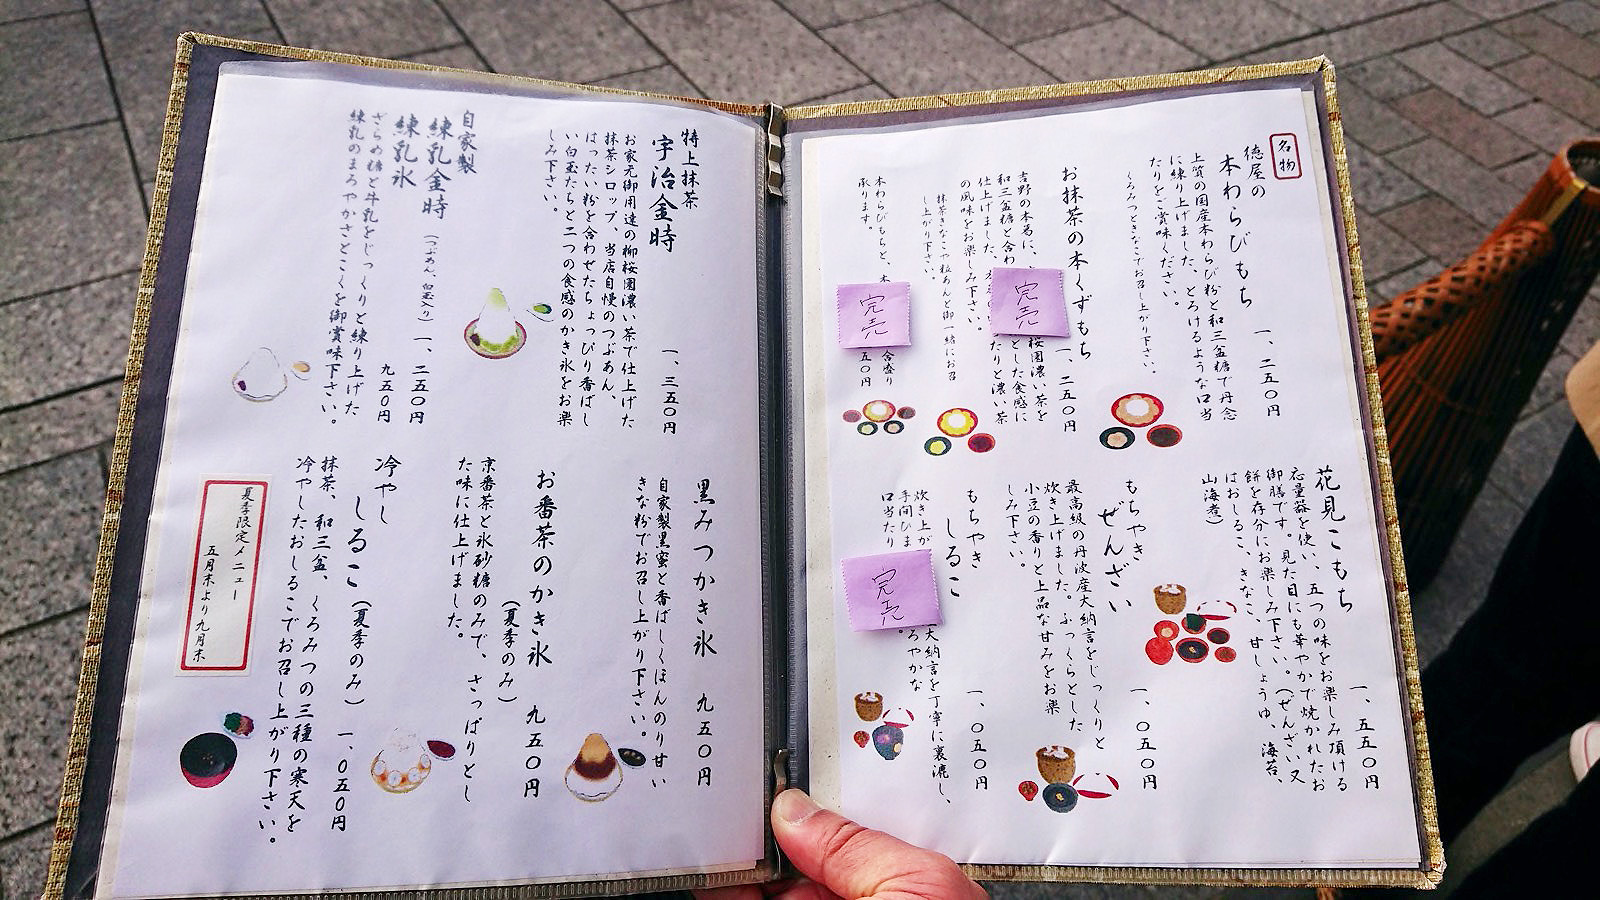 名物
徳屋の
本わらびもち 一、二五〇円
上質の国産本わらび粉と和三盆糖で丹念
に練り上げました、とろけるような口当
たりをご賞味ください。
くろみつときなこでお召し上がり下さい。
お抹茶の本くずもち 一、二五〇円
吉野の本葛に、
桜園濃い茶を
和三盆糖と合わ
とした食感に
仕上げました。
たりと濃い茶
の風味をお楽しみ下さい。
抹茶きなこや粒あんと御一緒にお召
し上がり下さい。
本わらびもちと、本
合盛り
承ります。
五〇円
完売
完売
花見こもち 一、五五〇円
応量器を使い、五つの味をお楽しみ頂ける
御膳です。見た目にも華やかで焼かれたお
餅を存分にお楽しみ下さい。(ぜんざい又
はおしるこ、きなこ、甘しょうゆ、海苔、
山海煮)
もちやき
ぜんざい 一、〇五〇円
最高級の丹波産大納言をじっくりと
炊き上げました。ふっくらとした
小豆の香りと上品な甘みをお楽
しみ下さい。
もちやき
しるこ 一、〇五〇円
炊き上が
大納言を丁寧に裏漉し、
手間ひま
ろやかな
口当たり
完売
特上抹茶
宇治金時 一、三五〇円
お家元御用達の柳桜園濃い茶で仕上げた
抹茶シロップ、当店自慢のつぶあん、
はったい粉を合わせたちょっぴり香ばし
い白玉たちと二つの食感のかき氷をお楽
しみ下さい。
自家製
練乳金時 (つぶあん、白玉入り) 一、二五〇円
練乳氷 九五〇円
ざらめ糖と牛乳をじっくりと練り上げた
練乳のまろやかさとこくを御賞味下さい。
黒みつかき氷 九五〇円
自家製黒蜜と香ばしくほんのり甘い
きな粉でお召し上がり下さい。
お番茶のかき氷 九五〇円
(夏季のみ)
京番茶と氷砂糖のみで、さっぱりとし
た味に仕上げました。
冷やし
しるこ (夏季のみ) 一、〇五〇円
抹茶、和三盆、くろみつの三種の寒天を
冷やしたおしるこでお召し上がり下さい。
夏季限定メニュー
五月末より九月末